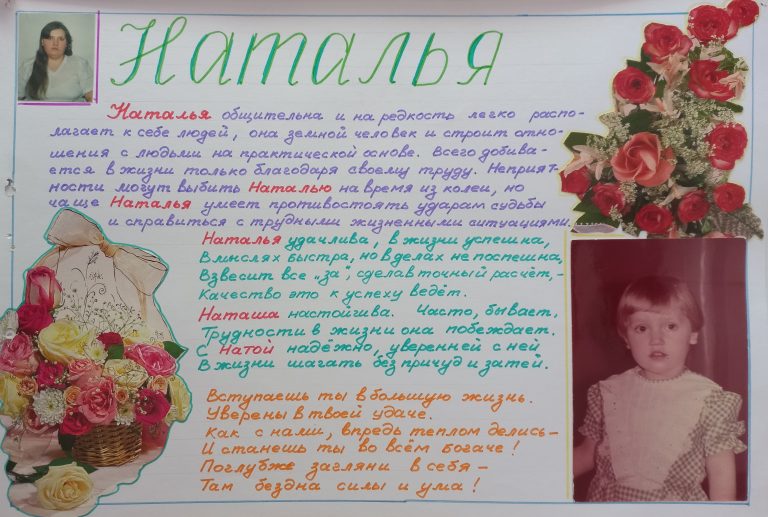 Наталья
Наталья общительна и на редкость легко распо-
лагает к себе людей, она земной человек и строит отно-
шения с людьми на практической основе. Всего добива-
ется в жизни только благодаря своему труду. Неприят-
ности могут выбить Наталью на время из колеи, но
чаще Наталья умеет противостоять ударам судьбы
и справиться с трудными жизненными ситуациями.
Наталья удачлива, в жизни успешна,
В мыслях быстра, но в делах не поспешна,
Взвесит все „за", сделав точный расчёт,-
Качество это к успеху ведёт.
Наташа настойчива. Часто, бывает,
Трудности в жизни она побеждает.
С Натой надёжно, уверенней с ней
В жизни шагать без причуд и затей.
Вступаешь ты в большую жизнь.
Уверены в твоей удаче.
Как с нами, впредь теплом делись-
И станешь ты во всём богаче!
Поглубже загляни в себя -
Там бездна силы и ума!